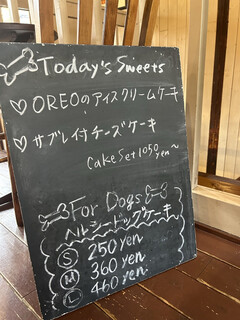 Today's Sweets
♡ OREOのアイスクリームケーキ
♡ サブレ付チーズケーキ
Cake Set 1050 yen～
For Dogs
ヘルシードッグケーキ
S 250 yen
M 360 yen
L 460 yen